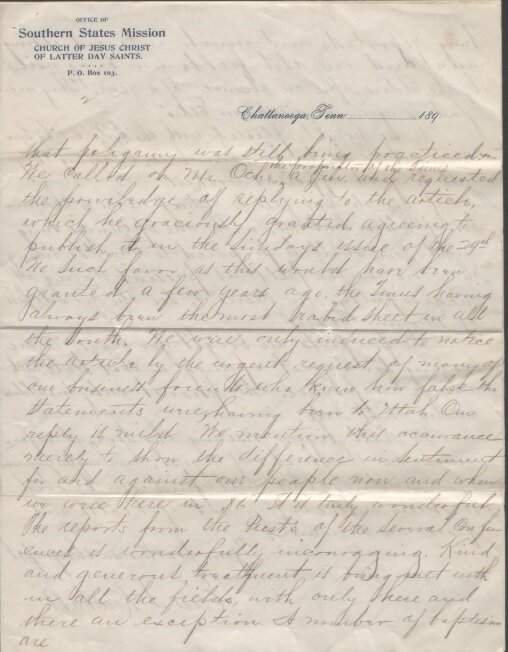 OFFICE OF
Southern States Mission
CHURCH OF JESUS CHRIST
OF LATTER DAY SAINTS.
P. O. Box 103.
2
Chattanooga, Tenn 189
that poligamy was still being practiced
the proprietor of the Times
We called on Mr. Ochs, a Jew and requested
the privaledge of replying to the article,
which he graciously granted, agreeing to
publish it in the Sundays issue of the 29th
No such favor as this would have been
granted a few years ago. the Times having
always been the most rabid sheet in all
the South. We were only induced to notice
the article by the urgent request of many of
our business friends who knew how false the
statements were, having been to Utah. Our
reply is mild. We mention this occurance
merely to show the difference in sentiment
for and against our people now and when
we were here in 86. It is truly wonderful.
The reports from the Prests of the several Confer
ences is wonderfully incouraging. Kind
and generous treatment is being met with
in all the fields, with only here and
there an exception. A number of baptisms
are